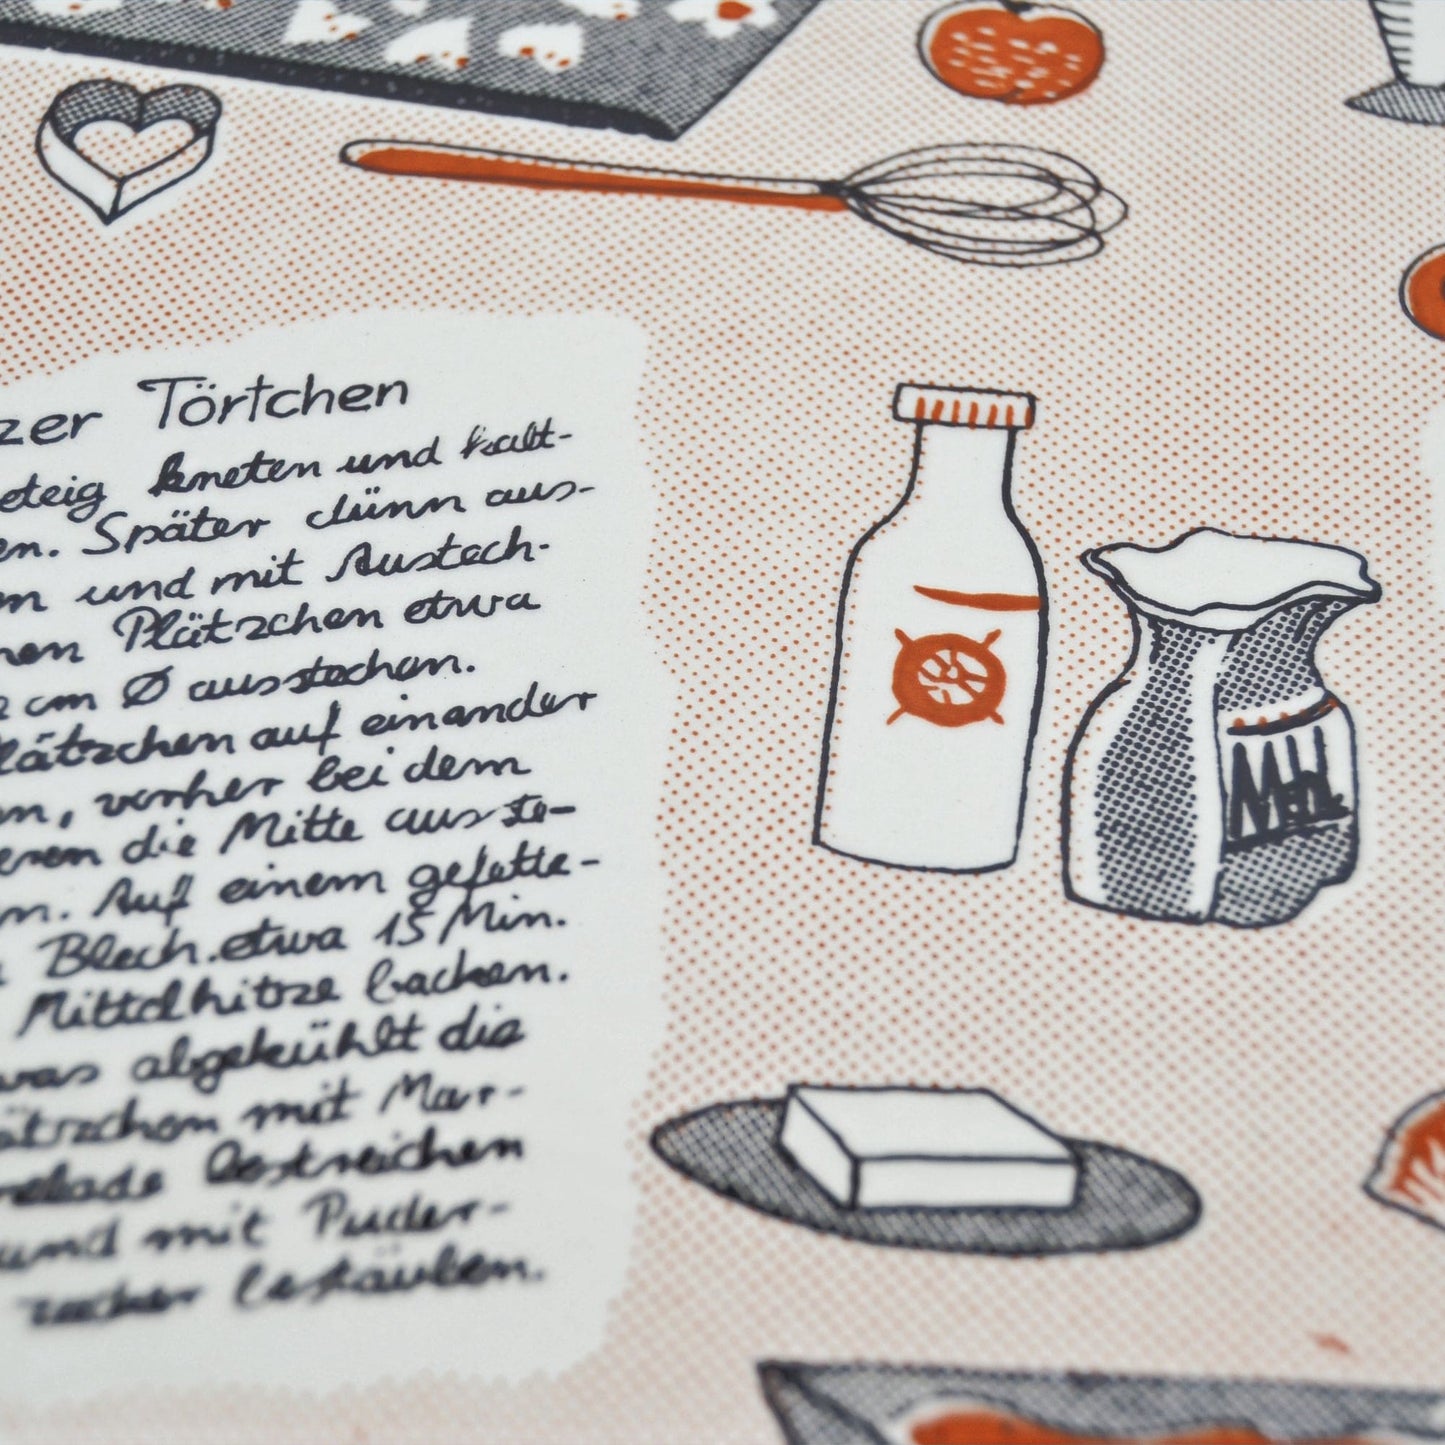 zer Törtchen
eteig kneten und kalt-
en. Später dünn aus-
en und mit Austech-
nen Plätzchen etwa
cm Ø ausstechen.
lätzchen auf einander
en, vorher bei dem
eren die Mitte ausste-
en. Auf einem gefette-
Blech. etwa 15 Min.
Mittelhitze backen.
was abgekühlt die
ätzchen mit Mar-
melade bestreichen
und mit Puder-
zucker bestäuben.
Mehl